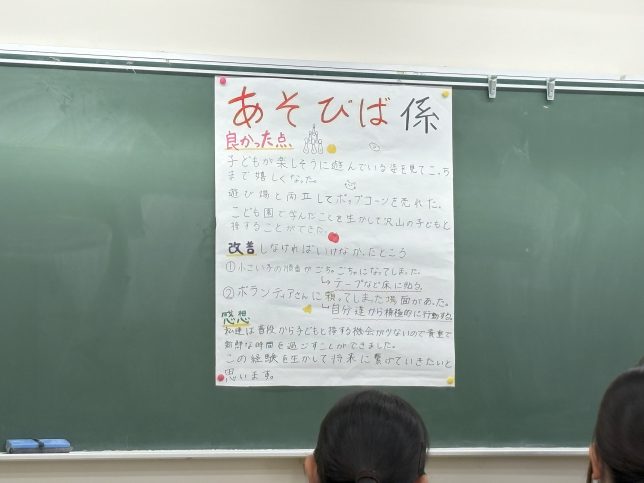 あそびば係
良かった点、
子どもが楽しそうに遊んでいる姿を見てこっち
まで嬉しくなった。
遊び場と両立してポップコーンを売れた。
こども園で学んだことを生かして沢山の子どもと
接することができた。
改善しなければいけなかったところ
①小さい子の順番がごちゃごちゃになってしまった。
↳テープなど床に貼る。
②ボランティアさんに頼ってしまった場面があった。
↳自分達から積極的に行動する。
感想
私達は普段から子どもと接する機会がないので貴重で
新鮮な時間を過ごすことができました。
この経験を生かして将来に繋げていきたいと
思います。